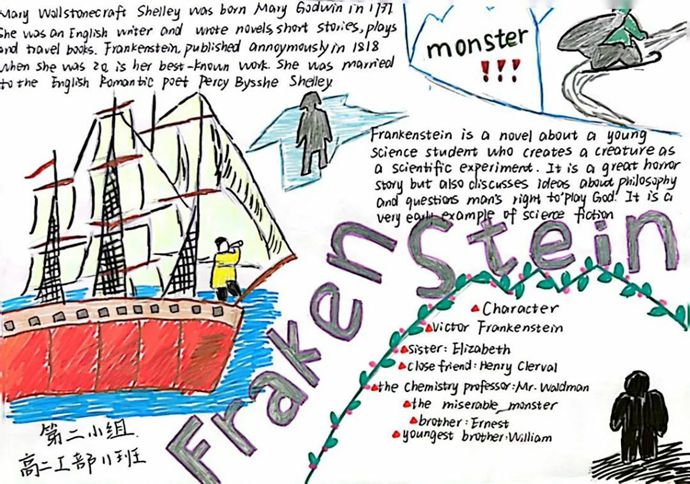 Mary Wollstonecraft Shelley was born Mary Godwin in 1797
She was an English writer and wrote novels, short stories, plays
and travel books. Frankenstein, published annoymously in 1818
when she was 20, is her best-known work. She was married
to the English Romantic poet Percy Bysshe Shelley.
monster
!!!
Frankenstein is a novel about a young
science student who creates a creature as
a scientific experiment. It is a great horror
story but also discusses ideas about philosophy
and questions man's right to "play God". It is a
very early example of science fiction
FrakenStein
Character
Victor Frankenstein
sister: Elizabeth
close friend: Henry Clerval
the chemistry professor: Mr. Waldman
the miserable monster
brother: Ernest
youngest brother: William
第二小组
高二工部11班